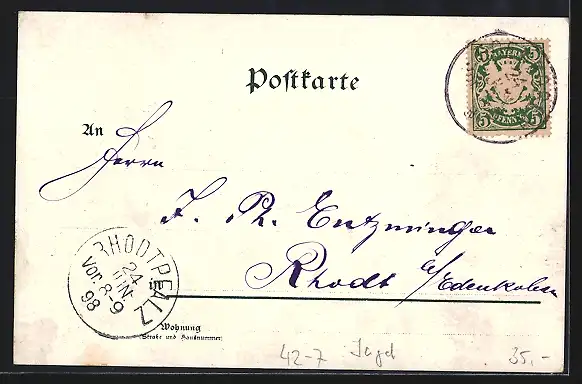 Postkarte
5 BAYERN 5
5 PFENNIG 5
An
Herrn
J. Ph. Entzminger
in Rhodt b/Edenkoben
RHODT PFALZ
24
JUN.
Vor. 8-9
98
Wohnung
(Straße und Hausnummer)
42-7 Jagd 35.-